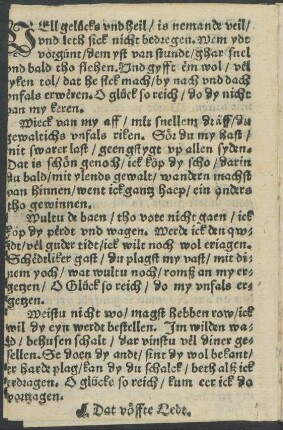 VEll gelücks vnd heil / is nemande veil /
vnd leth sick nicht bedregen. Wem ydt
vorgünt / dem yst van stundt / ghar snel
vnd bald tho flehen. Vnd gyfft em wol / vel
yken tol / dat he sick mach / by nach vnd dach
vnfals erweren. O glück so reich / do dy nicht
van my keren.
Wieck van my aff / mit snellem draff / du
gewaltichs vnfals riken. Sör du my hast /
nit swarer last / geengstygt vp allen syden.
Dat is schön genoch / ick köp dy scho / darin
du bald / mit ylends gewalt / wandern machst
van hinnen / went ick gantz haep / ein anders
tho gewinnen.
Wultu de baen / tho vote nicht gaen / ick
köp dy perdt vnd wagen. Werde ick den qw
idt / vel guder tidt / ick wilt noch wol eriagen.
Schedtliker gast / du plagst my vast / mit di
nem yoch / wat wultu noch / romß an my er
getzen / O Glück so reich / do my vnfals er
getzen.
Weistu nicht wo / magst hebben row / ick
wil dy eyn werde bestellen. Im wilden wa
ld / behusen schalt / dar vinstu vel diner ge
sellen. Se doen dy andt / sint dy wol bekant /
er harde plag / kan dy du schalck / beth alß ick
erdragen. O glücke so reich / kum eer ick do
vortzagen.
Dat vöffte Ledt.